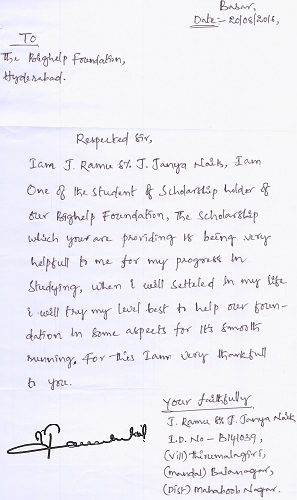 Basar,
Date:- 20/08/2016,
To
The Bighelp Foundation,
Hyderabad.
Respected Sir,
Iam J. Ramu S/o J. Janya Naik, Iam
One of the student of Scholarship holder of
our Bighelp Foundation, The Scholarship
which your are providing is being very
helpfull to me for my progress in
Studying, when I will setteled in my life
I will try my level best to help our foun-
dation in some aspects for it's smooth
running. For this Iam very thankfull
to you.
Your faithfully
J. Ramu S/o J. Janya Naik
I.D. No - B141039,
(Vill) Thirumalagiri,
(mandal) Balanagar,
(Dist) Mahaboob Nagar.